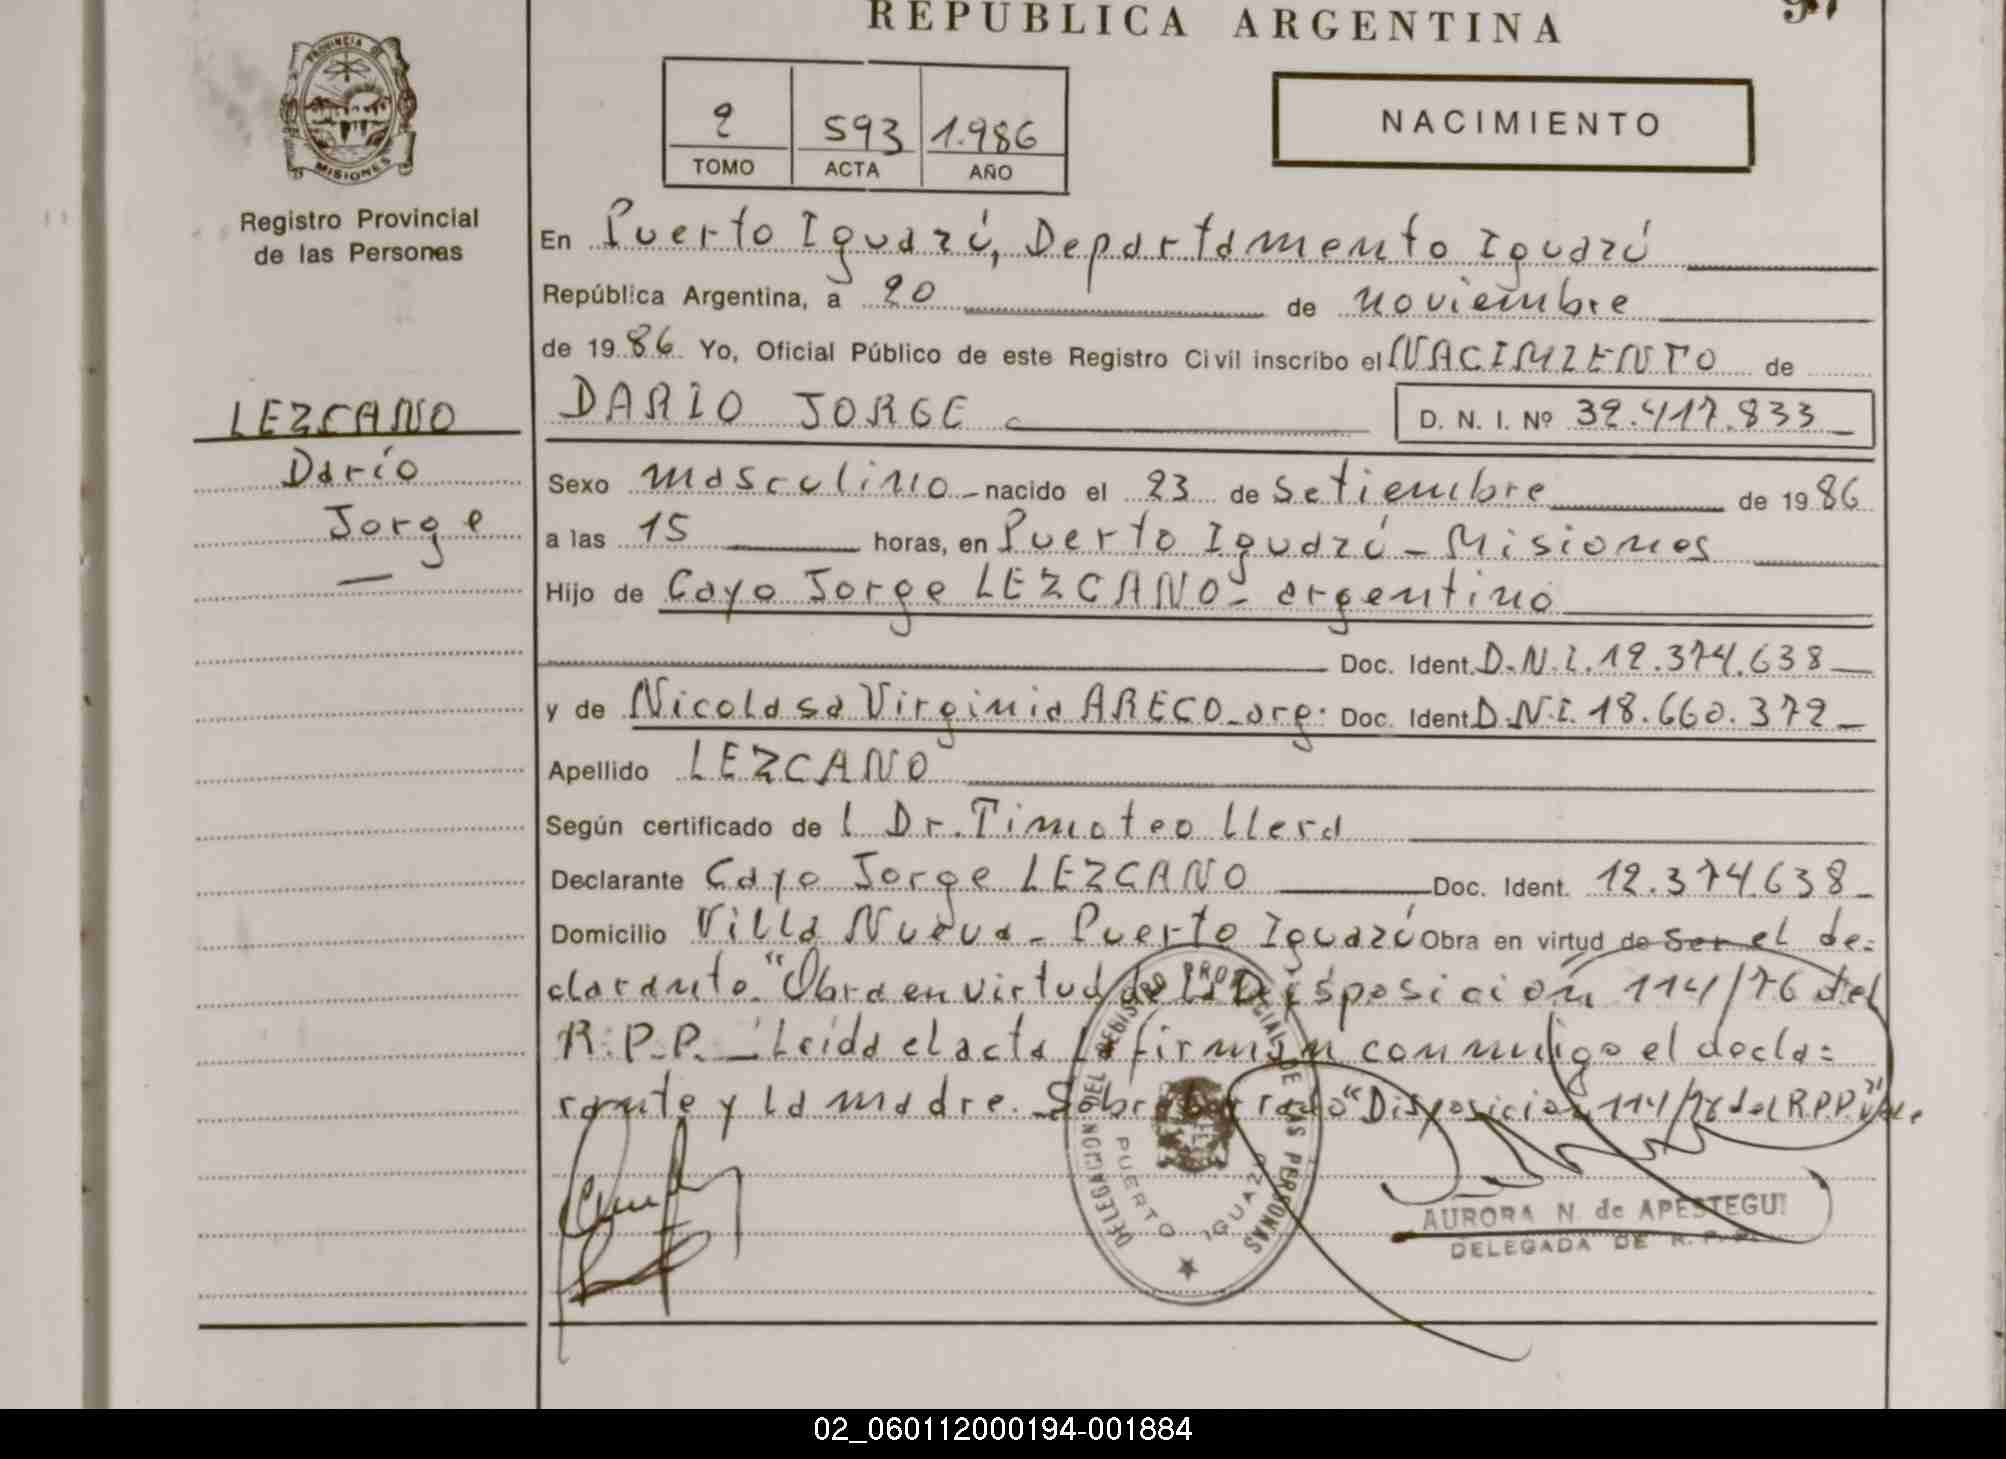 REPUBLICA ARGENTINA
PROVINCIA DE
MISIONES
2 593 1.986
TOMO ACTA AÑO
NACIMIENTO
Registro Provincial
de las Personas
En Puerto Iguazú, Departamento Iguazú
República Argentina, a 20 de noviembre
de 1986 Yo, Oficial Público de este Registro Civil inscribo el NACIMIENTO de
LEZCANO
DARIO JORGE D. N. I. Nº 32.417.833
Darío
Jorge
Sexo masculino - nacido el 23 de Setiembre de 1986
a las 15 horas, en Puerto Iguazú - Misiones
Hijo de Cayo Jorge LEZCANO - argentino
Doc. Ident. D.N.I. 12.374.638
y de Nicolasa Virginia ARECO - arg. Doc. Ident D.N.I. 18.660.372
Apellido LEZCANO
Según certificado de l Dr. Timoteo Llera
Declarante Cayo Jorge LEZCANO Doc. Ident. 12.374.638
Domicilio Villa Nueva - Puerto Iguazú Obra en virtud de ser el de=
clarante. "Obra en virtud de la Disposición 114/76 del
R.P.P. - Leída el acta la firman conmigo el decla=
rante y la madre. Sobre borrado "Disposición 114/76 del R.P.P." Vale.
DELEGACION DEL REGISTRO PROVINCIAL DE LAS PERSONAS
PUERTO IGUAZU
AURORA N. de APESTEGUI
DELEGADA DE R. P. P.
02_060112000194-001884